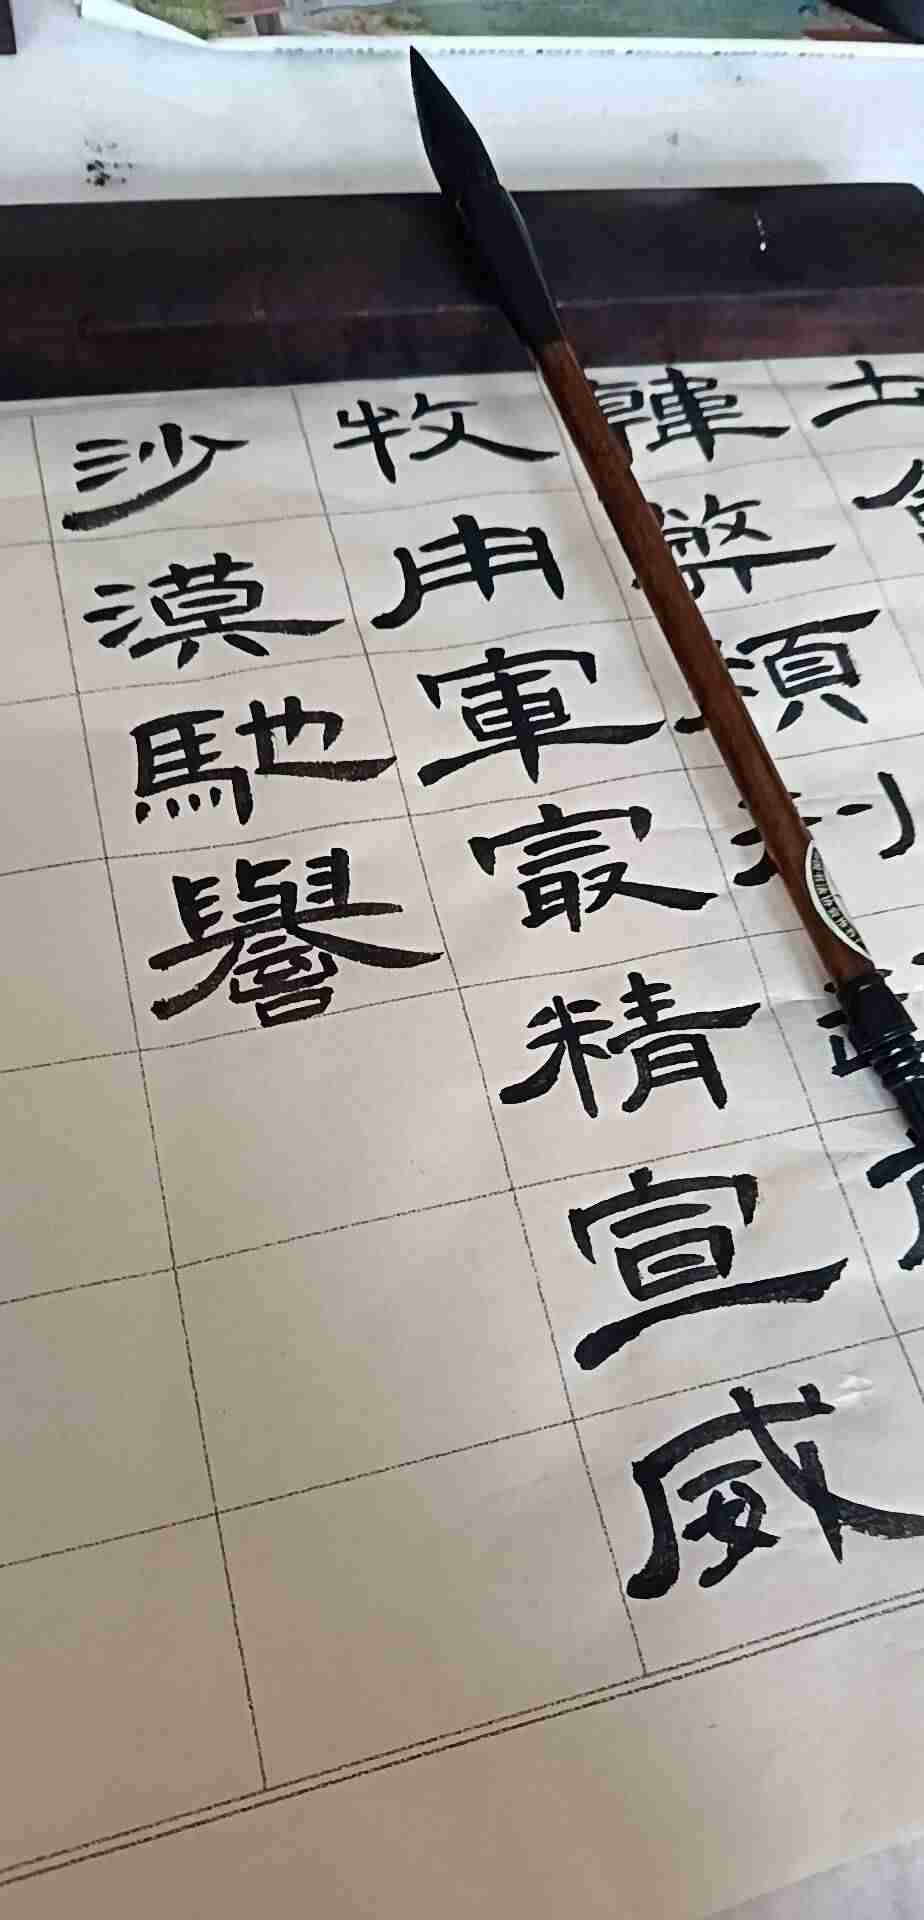 土
韓弊煩刑
牧用軍最精宣威
沙漠馳譽